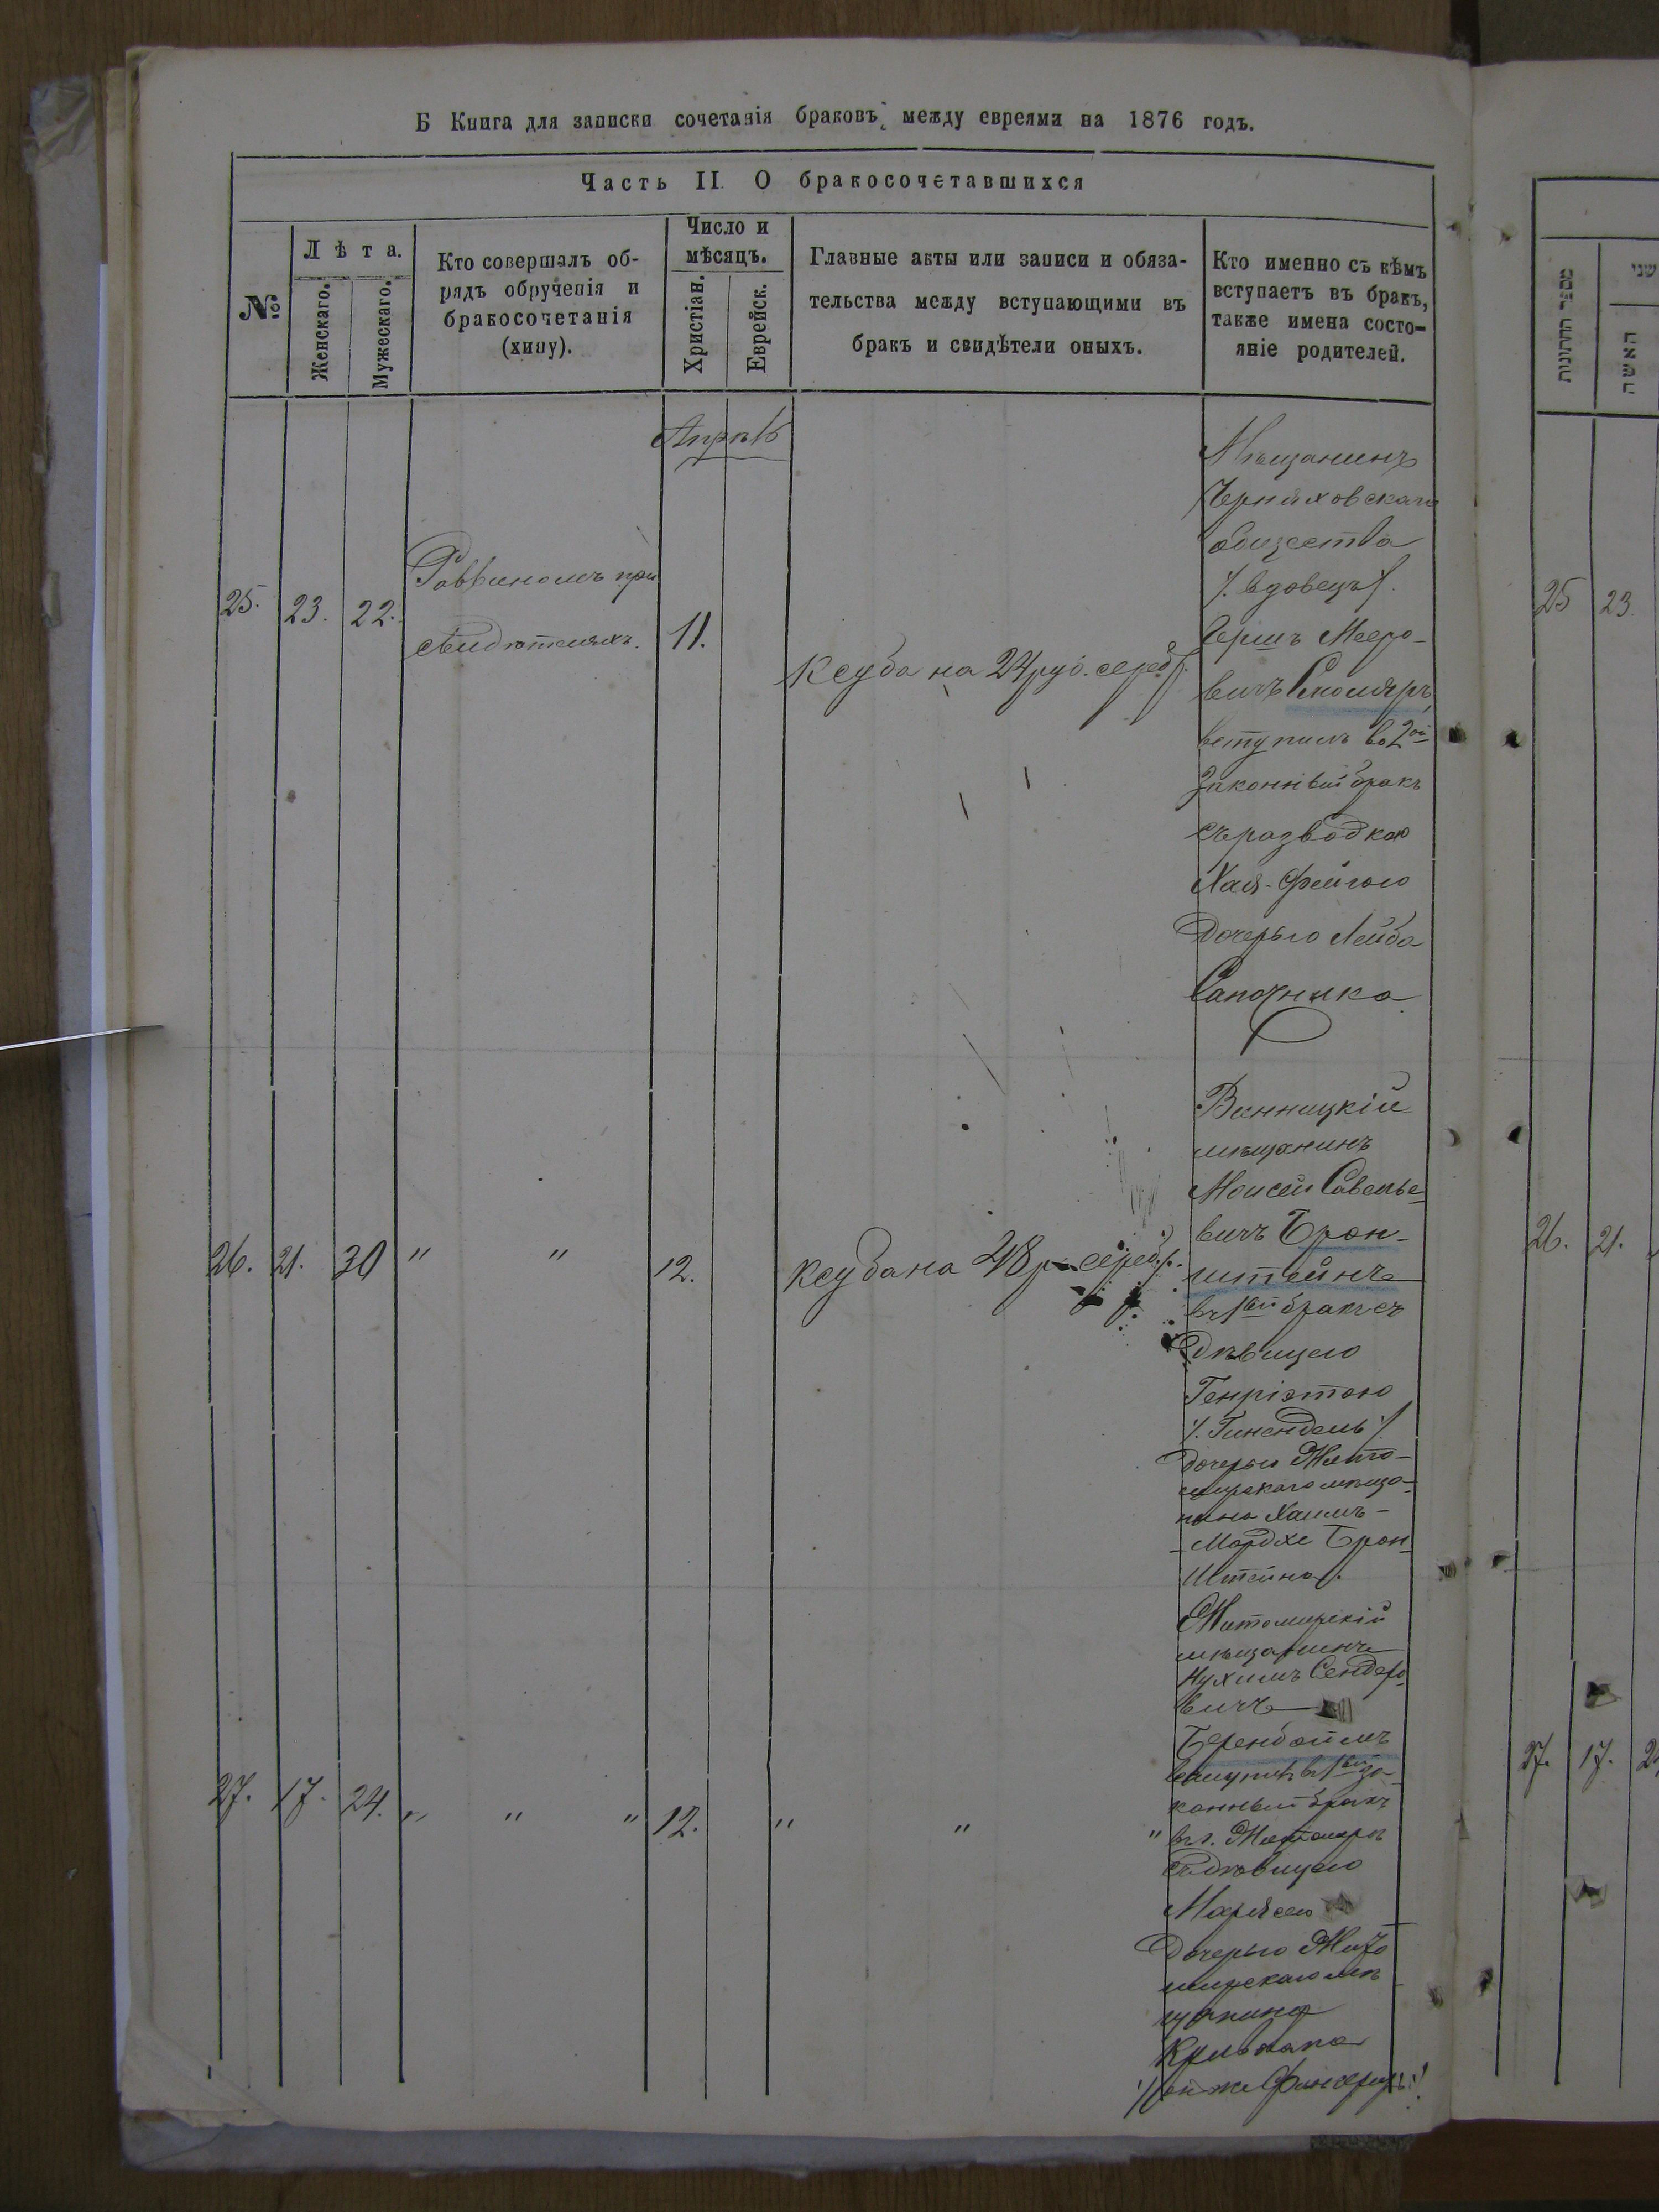 Б Книга для записки сочетанія браковъ между евреями на 1876 годъ.
Часть II. О бракосочетавшихся
№
Лѣта.
Женскаго.
Мужескаго.
Кто совершалъ об-
рядъ обрученія и
бракосочетанія
(хипу).
Число и
мѣсяцъ.
Христіан.
Еврейск.
Главные акты или записи и обяза-
тельства между вступающими въ
бракъ и свидѣтели оныхъ.
Кто именно съ кѣмъ
вступаетъ въ бракъ,
также имена состо-
яніе родителей.
Апрѣль
25. 23. 22.
Раввиномъ при
свидѣтеляхъ.
11.
Ксуба на 24 руб. сереб.
Мѣщанинъ
Черняховскаго
общества
/. вдовецъ /.
Гершъ Мееро-
вичъ Столяръ
вступилъ во 2ой
законный бракъ
съ разводкою
Хая-Фейгою
дочерью Лейба
Сапожника
26. 21. 30 " " 12.
Ксуба на 48 р. сереб.
Винницкій
мѣщанинъ
Моисей Савелье-
вичъ Брон-
штейнъ
въ 1ый бракъ съ
дѣвицею
Генріэтою
/. Гинендель /.
дочерью Жито-
мирскаго мѣща-
нина Хаимъ-
-Мордхе Брон-
штейна.
27. 17. 24. " " " 12. " " "
Житомирскій
мѣщанинъ
Нухимъ Сендеро-
вичъ
Беренбоймъ
вступилъ въ 1ый за-
конный бракъ
въ г. Житомирѣ
съ дѣвицею
Марьясею
дочерью Жито
мирскаго мѣ
щанина
он-же
מספר החתונות
האשה
שני
25 23.
26. 21.
27. 17. 2